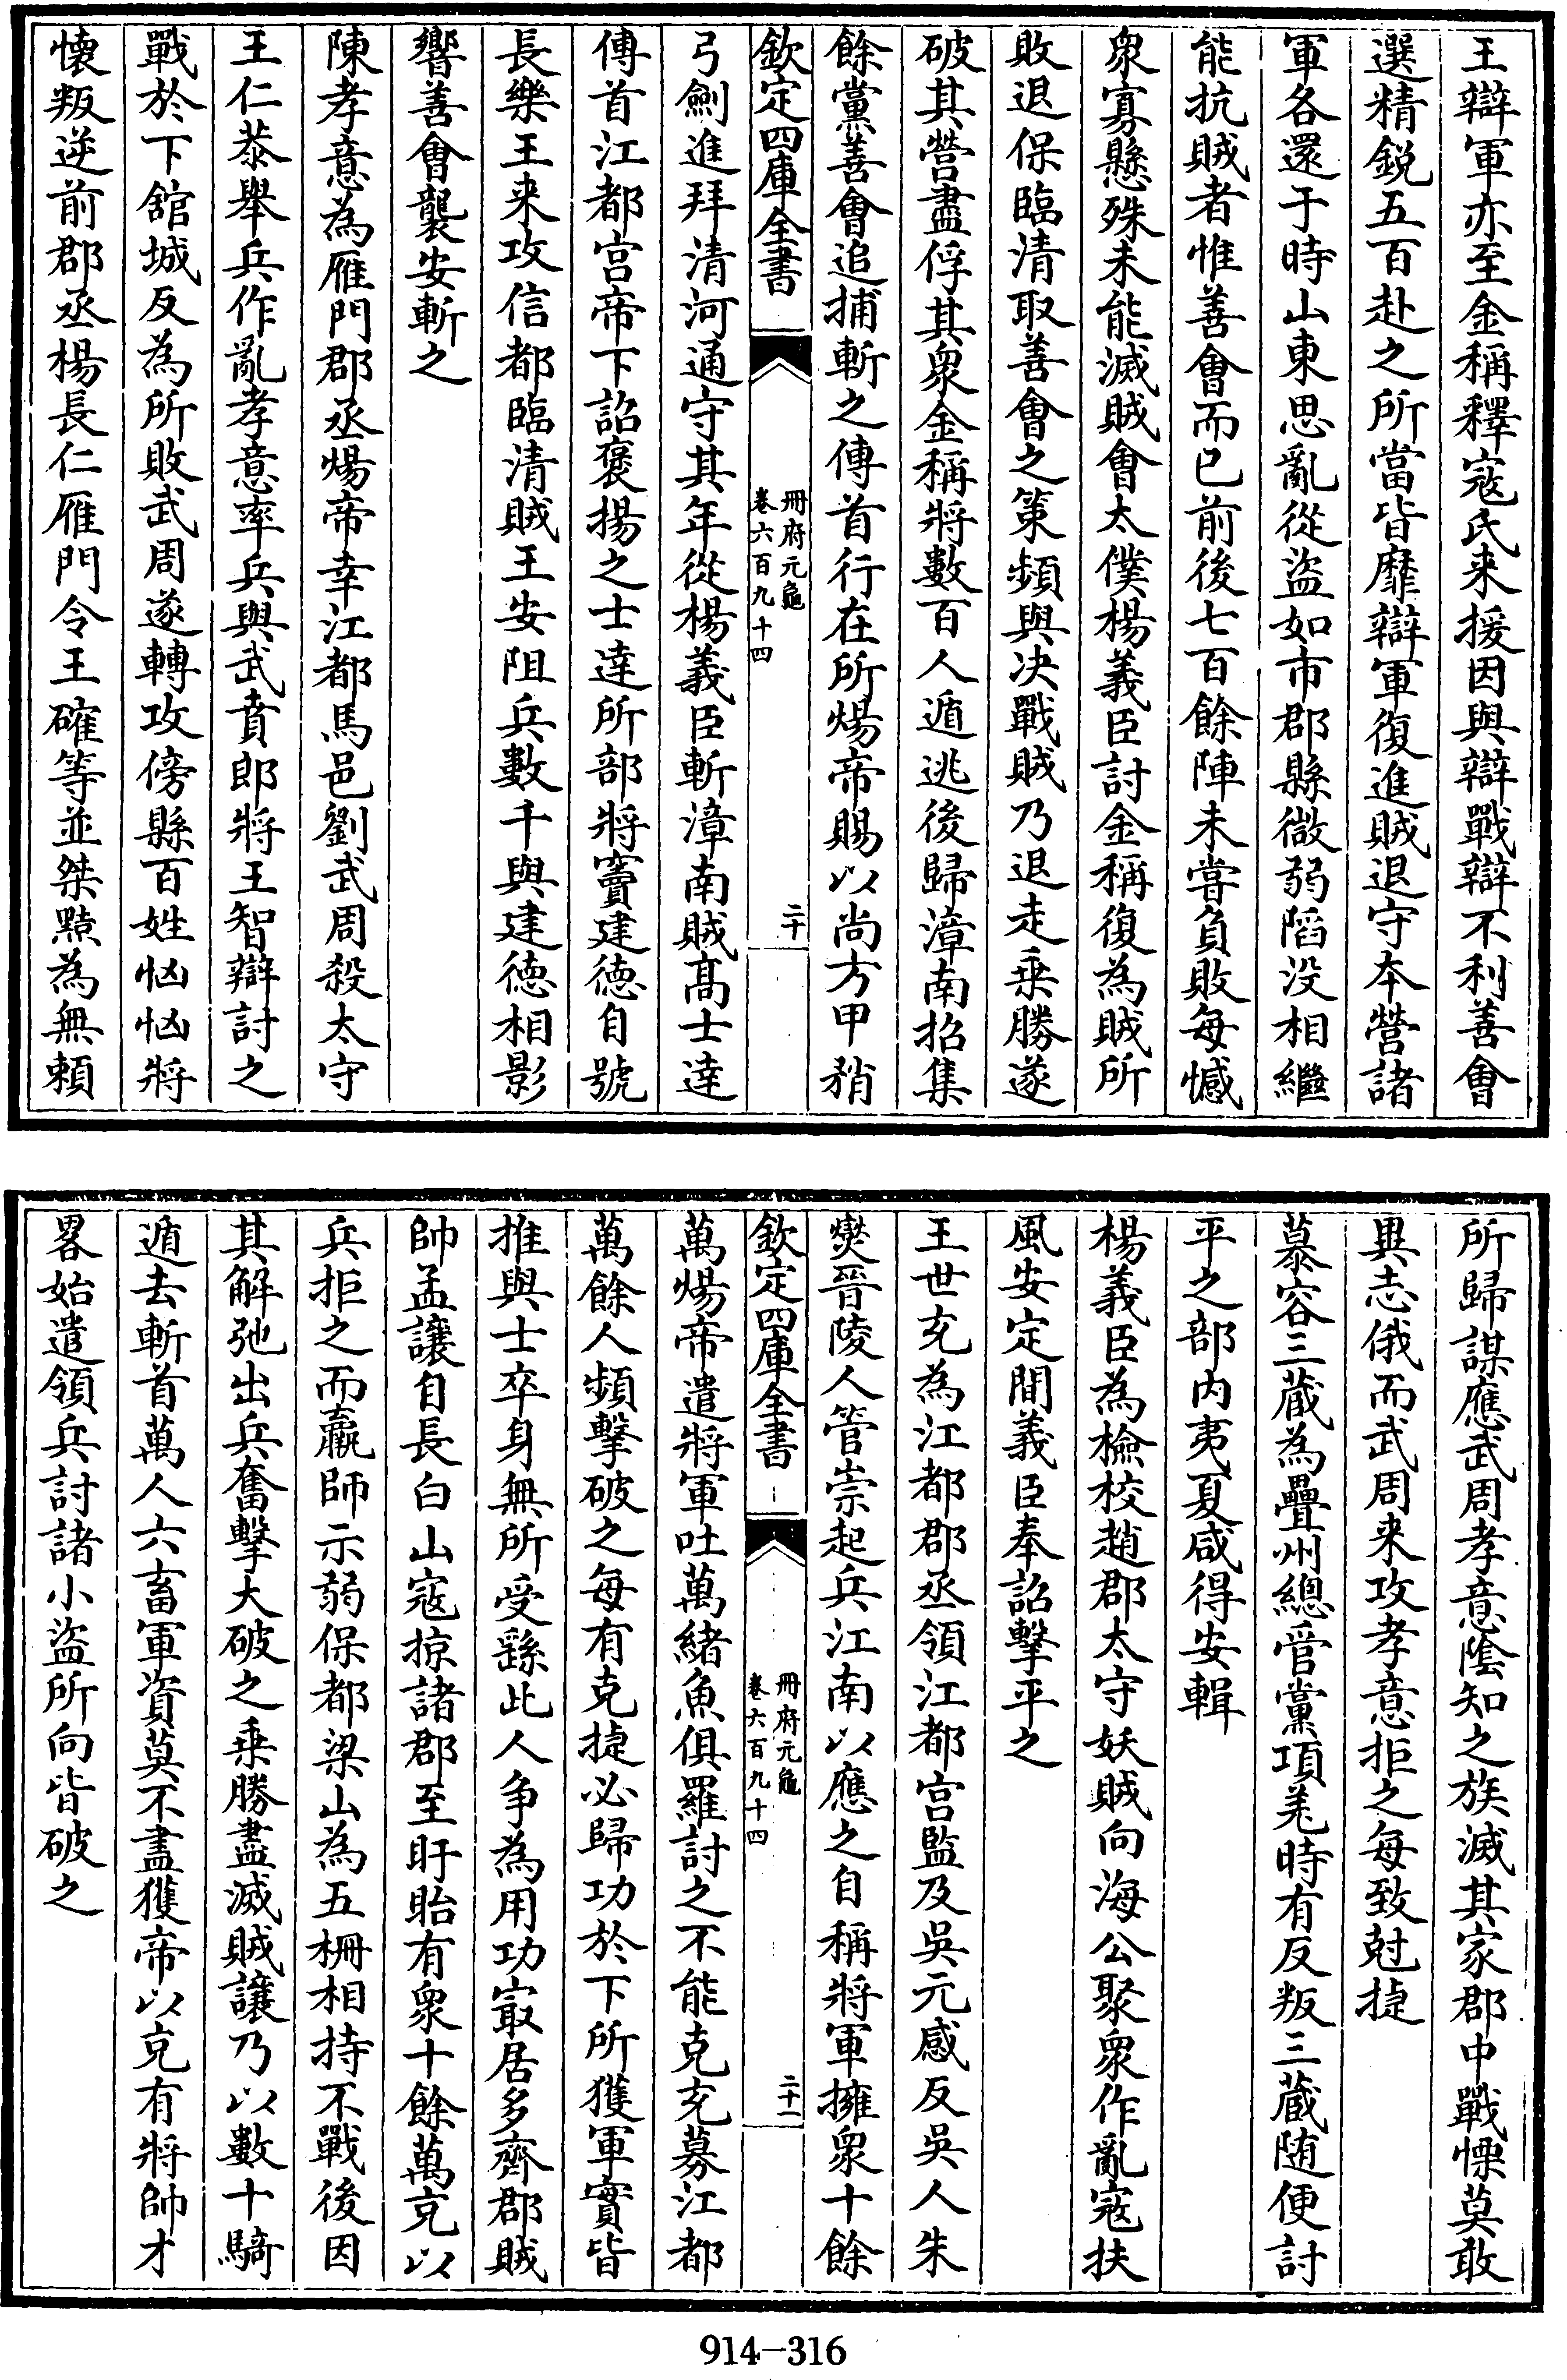 王辯軍亦至金稱釋寇氏来援因與辯戰辯不利善會
選精鋭五百赴之所當皆靡辯軍復進賊退守本營諸
軍各還于時山東思亂從盜如市郡縣微弱陷没相繼
能抗賊者惟善會而已前後七百餘陣未嘗負敗每憾
衆寡懸殊未能滅賊會太僕楊義臣討金稱復為賊所
敗退保臨清取善會之策頻與决戰賊乃退走乗勝遂
破其營盡俘其衆金稱將數百人遁逃後歸漳南招集
餘黨善會追捕斬之傳首行在所煬帝賜以尚方甲矟
欽定四庫全書
冊府元龜
卷六百九十四
二十
弓劍進拜清河通守其年從楊義臣斬漳南賊髙士達
傳首江都宫帝下詔褒揚之士達所部將竇建德自號
長樂王来攻信都臨清賊王安阻兵數千與建德相影
響善會襲安斬之
陳孝意為雁門郡丞煬帝幸江都馬邑劉武周殺太守
王仁恭舉兵作亂孝意率兵與武賁郎將王智辯討之
戰於下舘城反為所敗武周遂轉攻傍縣百姓忷忷將
懐叛逆前郡丞楊長仁雁門令王確等並桀黠為無賴
所歸謀應武周孝意隂知之族滅其家郡中戰慄莫敢
異志俄而武周来攻孝意拒之每致尅捷
慕容三蔵為疊州總管黨項羌時有反叛三蔵随便討
平之部内夷夏咸得安輯
楊義臣為檢校趙郡太守妖賊向海公聚衆作亂寇扶
風安定間義臣奉詔擊平之
王世充為江都郡丞領江都宫監及吳元感反吳人朱
爕晉陵人管崇起兵江南以應之自稱將軍擁衆十餘
欽定四庫全書
冊府元龜
卷六百九十四
二十一
萬煬帝遣將軍吐萬緒魚俱羅討之不能克充募江都
萬餘人頻擊破之每有克捷必歸功於下所獲軍實皆
推與士卒身無所受繇此人争為用功㝡居多齊郡賊
帥孟讓自長白山寇掠諸郡至盱眙有衆十餘萬充以
兵拒之而羸師示弱保都梁山為五柵相持不戰後因
其解弛出兵奮擊大破之乗勝盡滅賊讓乃以數十騎
遁去斬首萬人六畜軍資莫不盡獲帝以充有將帥才
畧始遣領兵討諸小盜所向皆破之
914-316